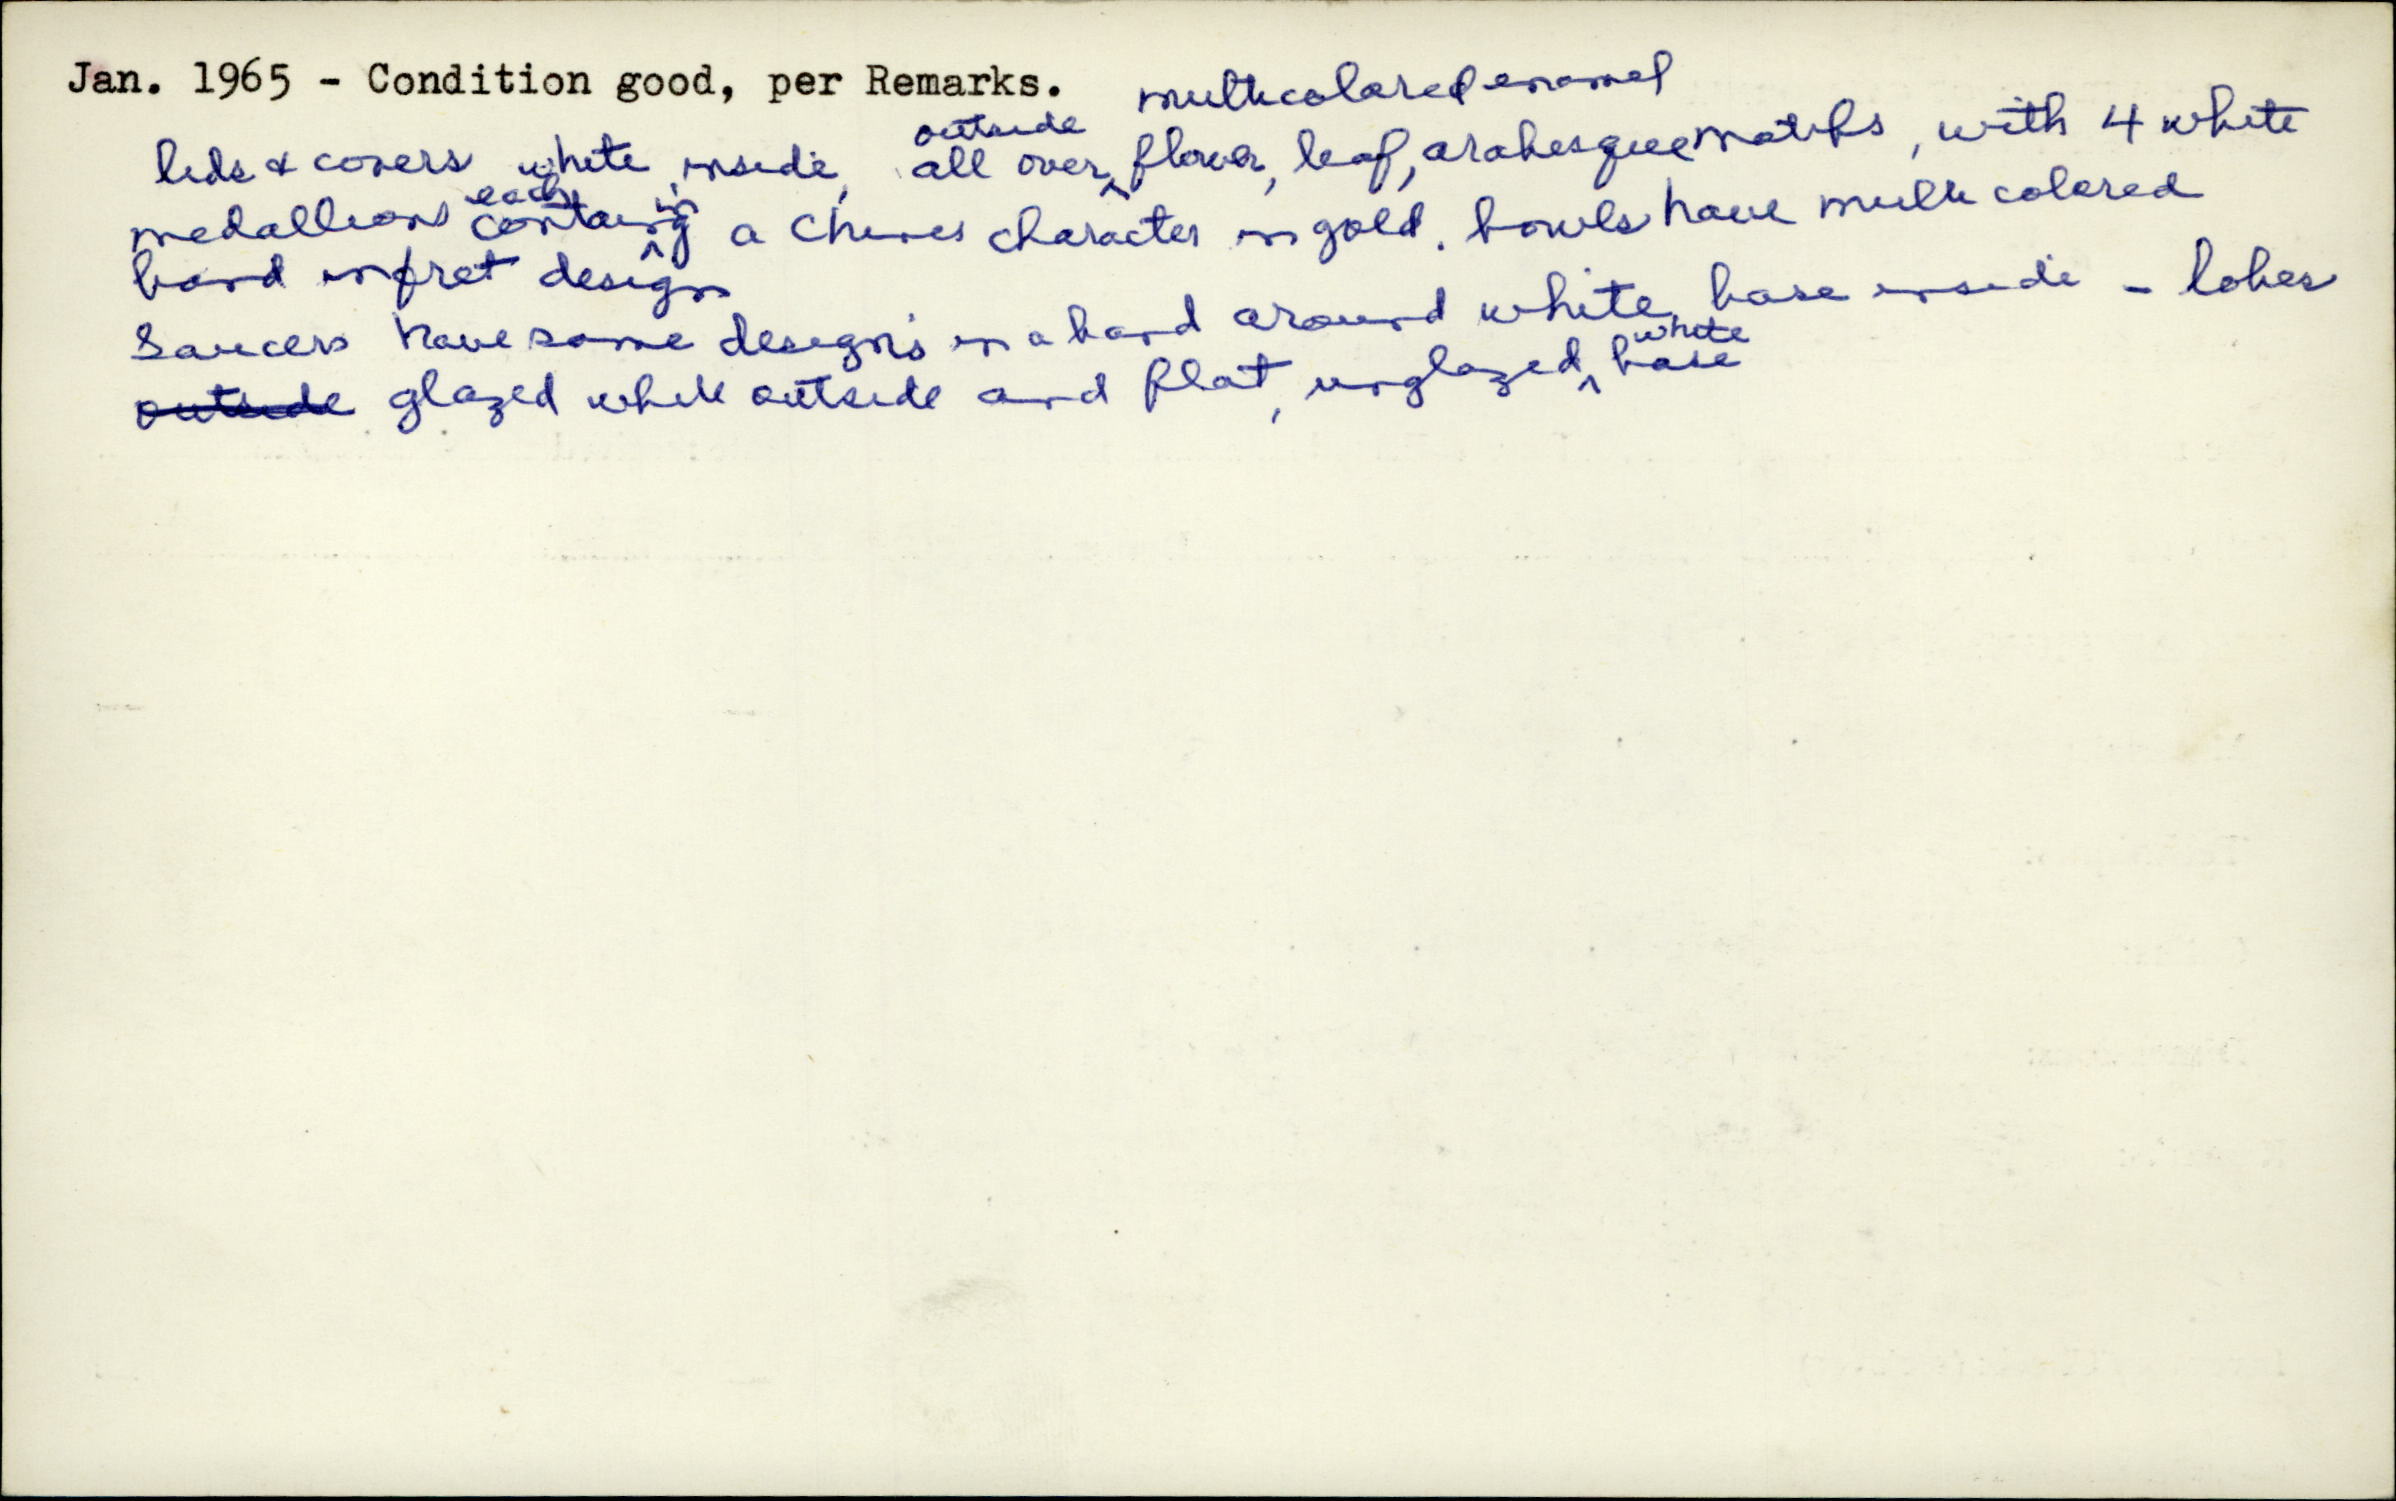 Jan. 1965 - Condition good, per Remarks.
lids & covers white inside, outside all over multicolored enamel flower, leaf, arabesque motifs, with 4 white
medallions each containing a Chines character in gold. bowls have multi colored
band in fret design
Saucers have same designs in a band around white base inside - lobes
outside glazed white outside and flat, unglazed white base